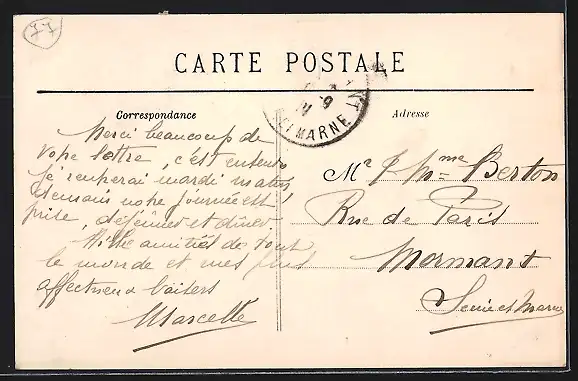 77
CARTE POSTALE
Correspondance
Adresse
ET MARNE
Merci beaucoup de
votre lettre, c'est entendu
je rentrerai mardi matin,
demain notre journée est
prise, déjeuner et dîner.
Mille amitiés de tout
le monde et mes plus
affectueux baisers
Marcelle
Mr & Mme Berton
Rue de Paris
Mormant
Seine et Marne